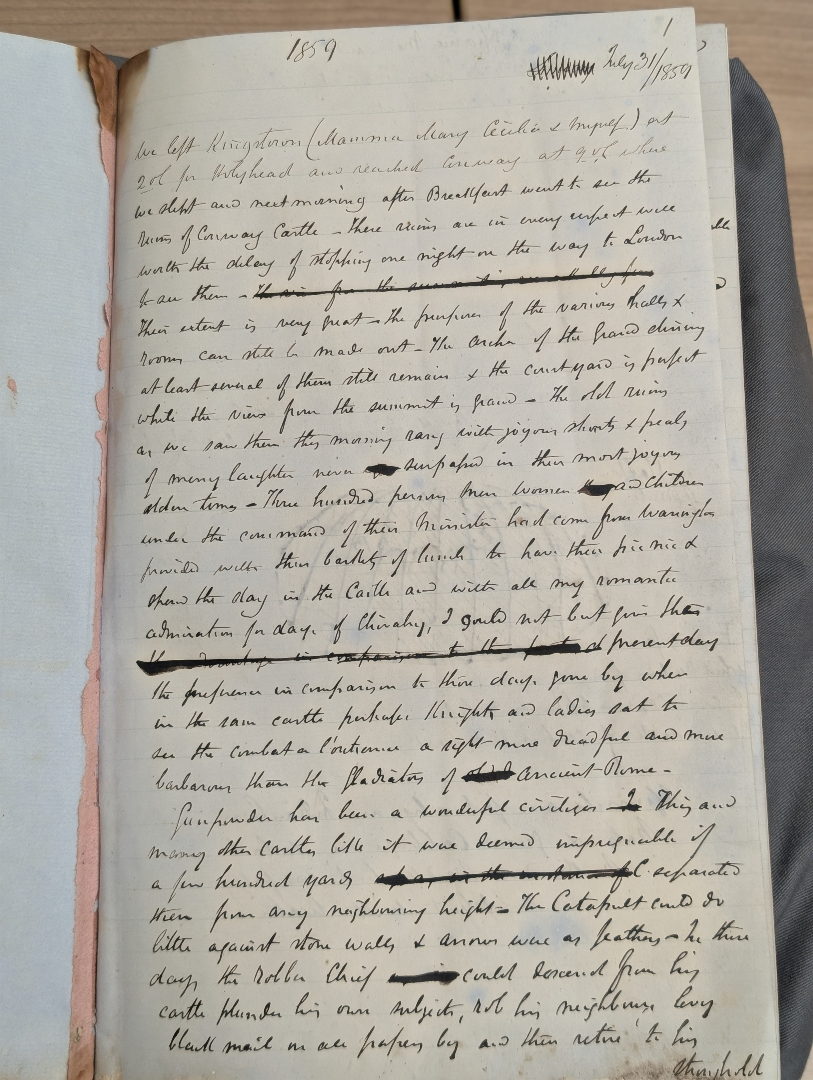 1859
1
July 31/1859
We left Kingstown (Mamma Mary Cecilia & myself) at
2 oc for Holyhead and reached Conway at 9 oc where
we slept and next morning after Breakfast went to see the
ruins of Conway Castle - These ruins are in every respect well
worth the delay of stopping one night on the way to London
to see them - The view from the summit is
Their extent is very great - The purpose of the various halls &
rooms can still be made out - The arches of the Grand dining
at least several of them still remain & the courtyard is perfect
while the view from the summit is grand - The old ruins
as we saw them this morning rang with joyous shouts & peals
of merry laughter never surpassed in their most joyous
olden times - Three hundred persons men women and children
under the command of their Minister had come from Warrington
provided with their baskets of lunch to have their pic nic &
spend the day in the Castle and with all my romantic
admiration for days of Chivalry, I could not but give the
the advantage in comparison to the past of present day
the preference in comparison to those days gone by when
in the same castle perhaps Knights and ladies sat to
see the combat a l'outrance a sight more dreadful and more
barbarous than the gladiators of ancient Rome -
Gunpowder has been a wonderful civilizer - This and
many other castles like it were deemed impregnable if
a few hundred yards separated
them from any neighbouring height - The Catapult could do
little against stone walls & arrows were as feathers - In those
days the robber Chief could descend from his
castle plunder his own subjects, rob his neighbours levy
black mail on all passers by and then retire to his
stronghold